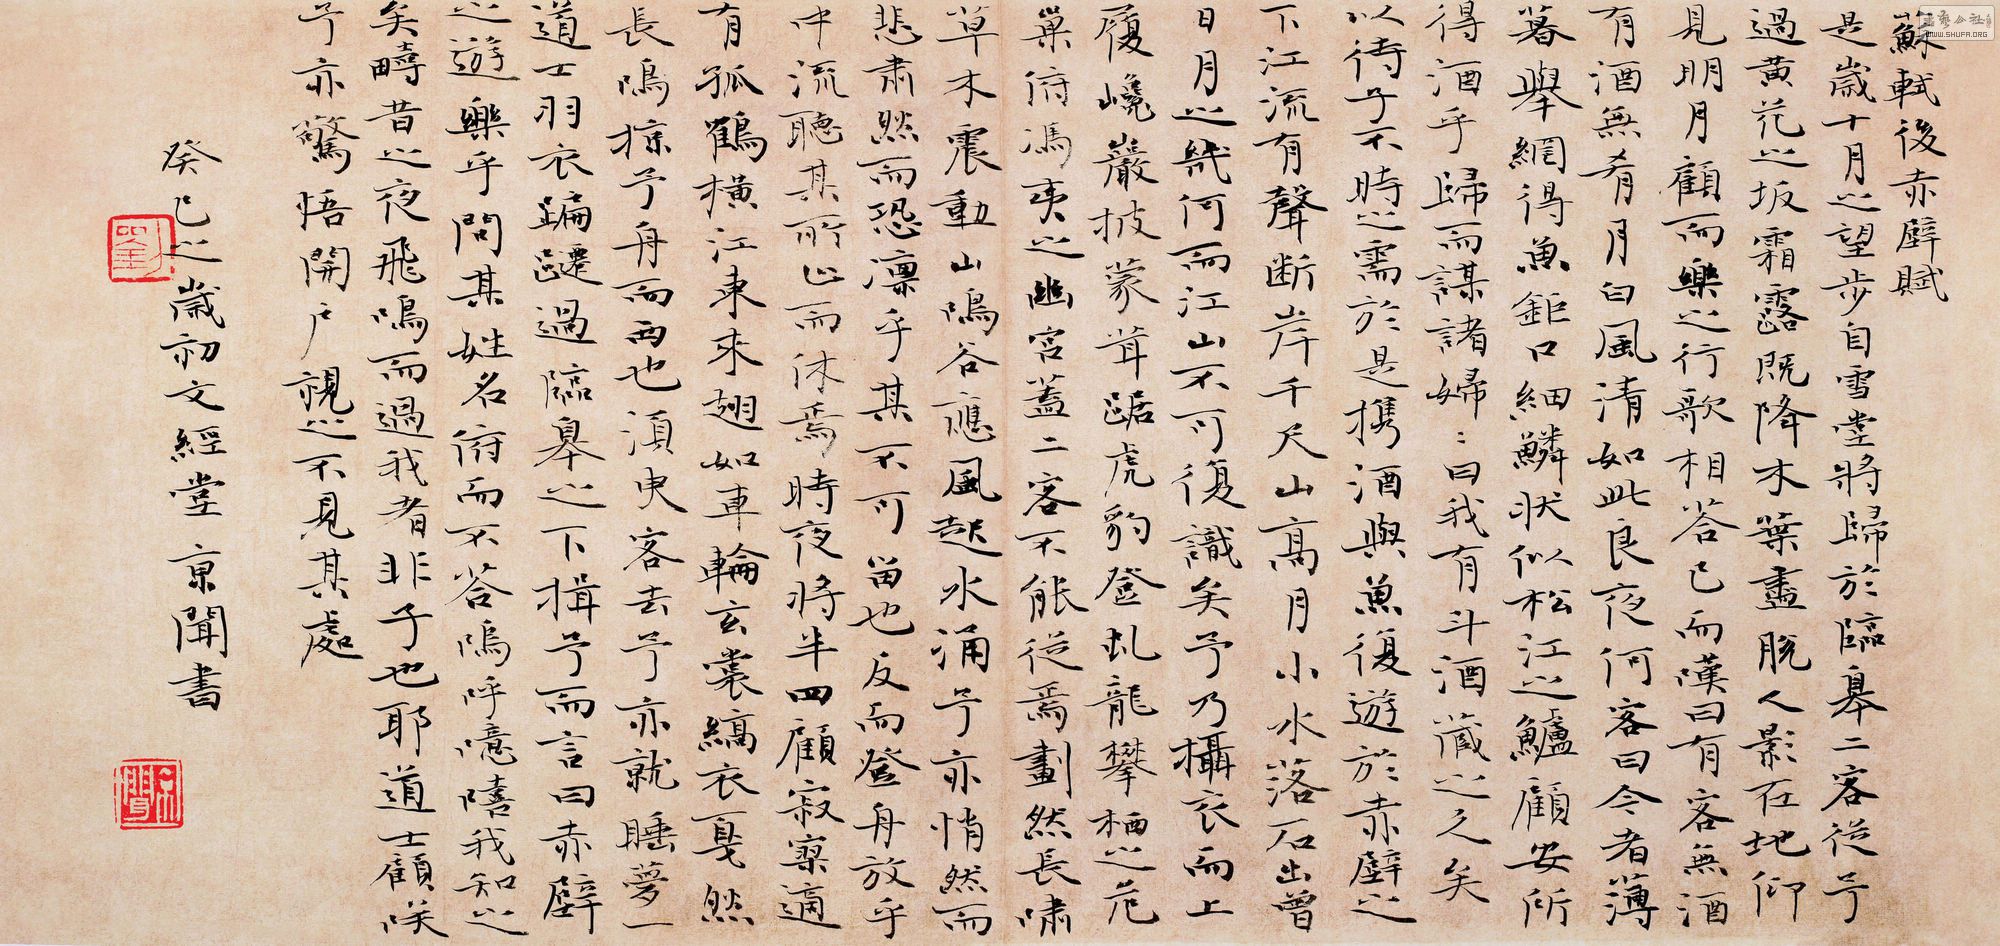 蘇軾後赤壁賦
是歲十月之望步自雪堂將歸於臨皋二客從予
過黃泥之坂霜露既降木葉盡脫人影在地仰
見明月顧而樂之行歌相答已而嘆曰有客無酒
有酒無肴月白風清如此良夜何客曰今者薄
暮舉網得魚鉅口細鱗狀似松江之鱸顧安所
得酒乎歸而謀諸婦:曰我有斗酒藏之久矣
以待子不時之需於是携酒與魚復遊於赤壁之
下江流有聲断岸千尺山高月小水落石出曾
日月之幾何而江山不可復識矣予乃攝衣而上
履巉巖披蒙茸踞虎豹登虬龍攀栖之危
巢俯馮夷之幽宮蓋二客不能從焉劃然長嘯
草木震動山鳴谷應風起水涌予亦悄然而
悲肅然而恐凛乎其不可留也反而登舟放乎
中流聽其所止而休焉時夜將半四顧寂寥適
有孤鶴橫江東來翅如車輪玄裳縞衣戛然
長鳴掠予舟而西也須臾客去予亦就睡夢一
道士羽衣蹁躚過臨皋之下揖予而言曰赤壁
之遊樂乎問其姓名俯而不答嗚呼噫嘻我知之
矣疇昔之夜飛鳴而過我者非子也耶道士顧咲
予亦驚悟開戶視之不見其處
癸巳之歲初文經堂京聞書
劉
京聞
WWW.SHUFA.ORG